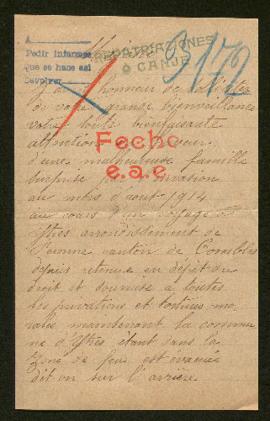 A
Pedir informes
Que se hace así
Devolver
REPATRIACIONES
O CANJE
B 172
J'ai l'honneur de solliciter
de votre grande bienveillance
votre toute bienfaisante
attention en faveur
Fecho
e.a.e
d'une malheureuse famille
surprise par l'invasion
au mois d'août 1914
au cours d'un voyage à
arrondissement de
Péronne canton de Combles
depuis retenue en dépit du
droit et soumise à toutes
les privations et tortures mo-
rales maintenant la commu-
ne d' étant dans la
zone de feu est évacuée
dit on sur l'arrière